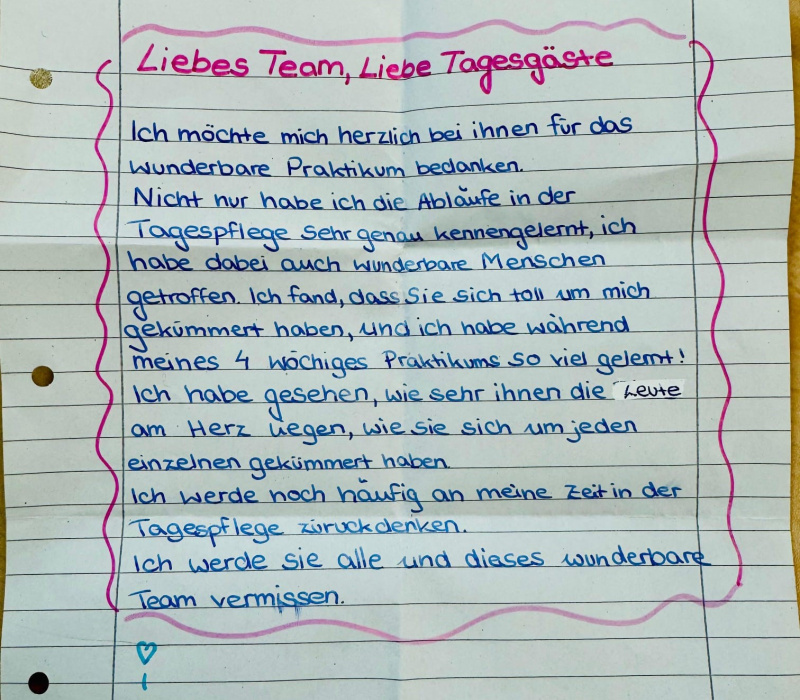 Liebes Team, Liebe Tagesgäste
Ich möchte mich herzlich bei ihnen für das
wunderbare Praktikum bedanken.
Nicht nur habe ich die Abläufe in der
Tagespflege sehr genau kennengelernt, ich
habe dabei auch wunderbare Menschen
getroffen. Ich fand, dass Sie sich toll um mich
gekümmert haben, und ich habe während
meines 4 wöchiges Praktikums so viel gelernt!
Ich habe gesehen, wie sehr ihnen die Leute
am Herz liegen, wie sie sich um jeden
einzelnen gekümmert haben.
Ich werde noch häufig an meine Zeit in der
Tagespflege zürückdenken.
Ich werde sie alle und dieses wunderbare
Team vermissen.